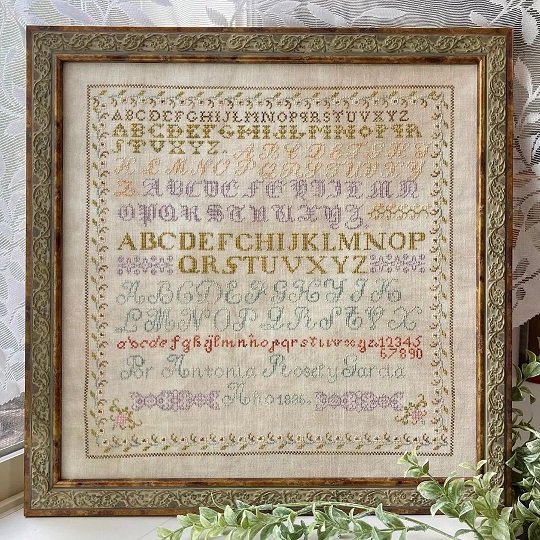 ABCDEFGHIJLMNOPQRSTUVXYZ
ABCDEFGHIJLMNOPQR
STUVXYZ.
ABCDEFGHIJ
KLMNOPQRSTUVXY
Z ABCDEFGHIJLMN
OPQRSTUVXYZ
ABCDEFGHIJKLMNOP
QRSTUVXYZ
ABCDEFGHIJK
LMNOPQRSTVX
abcdefghijlmnñopqrstuvxyz.12345
67890
Br Antonia Rosety Garcia
Año 1886